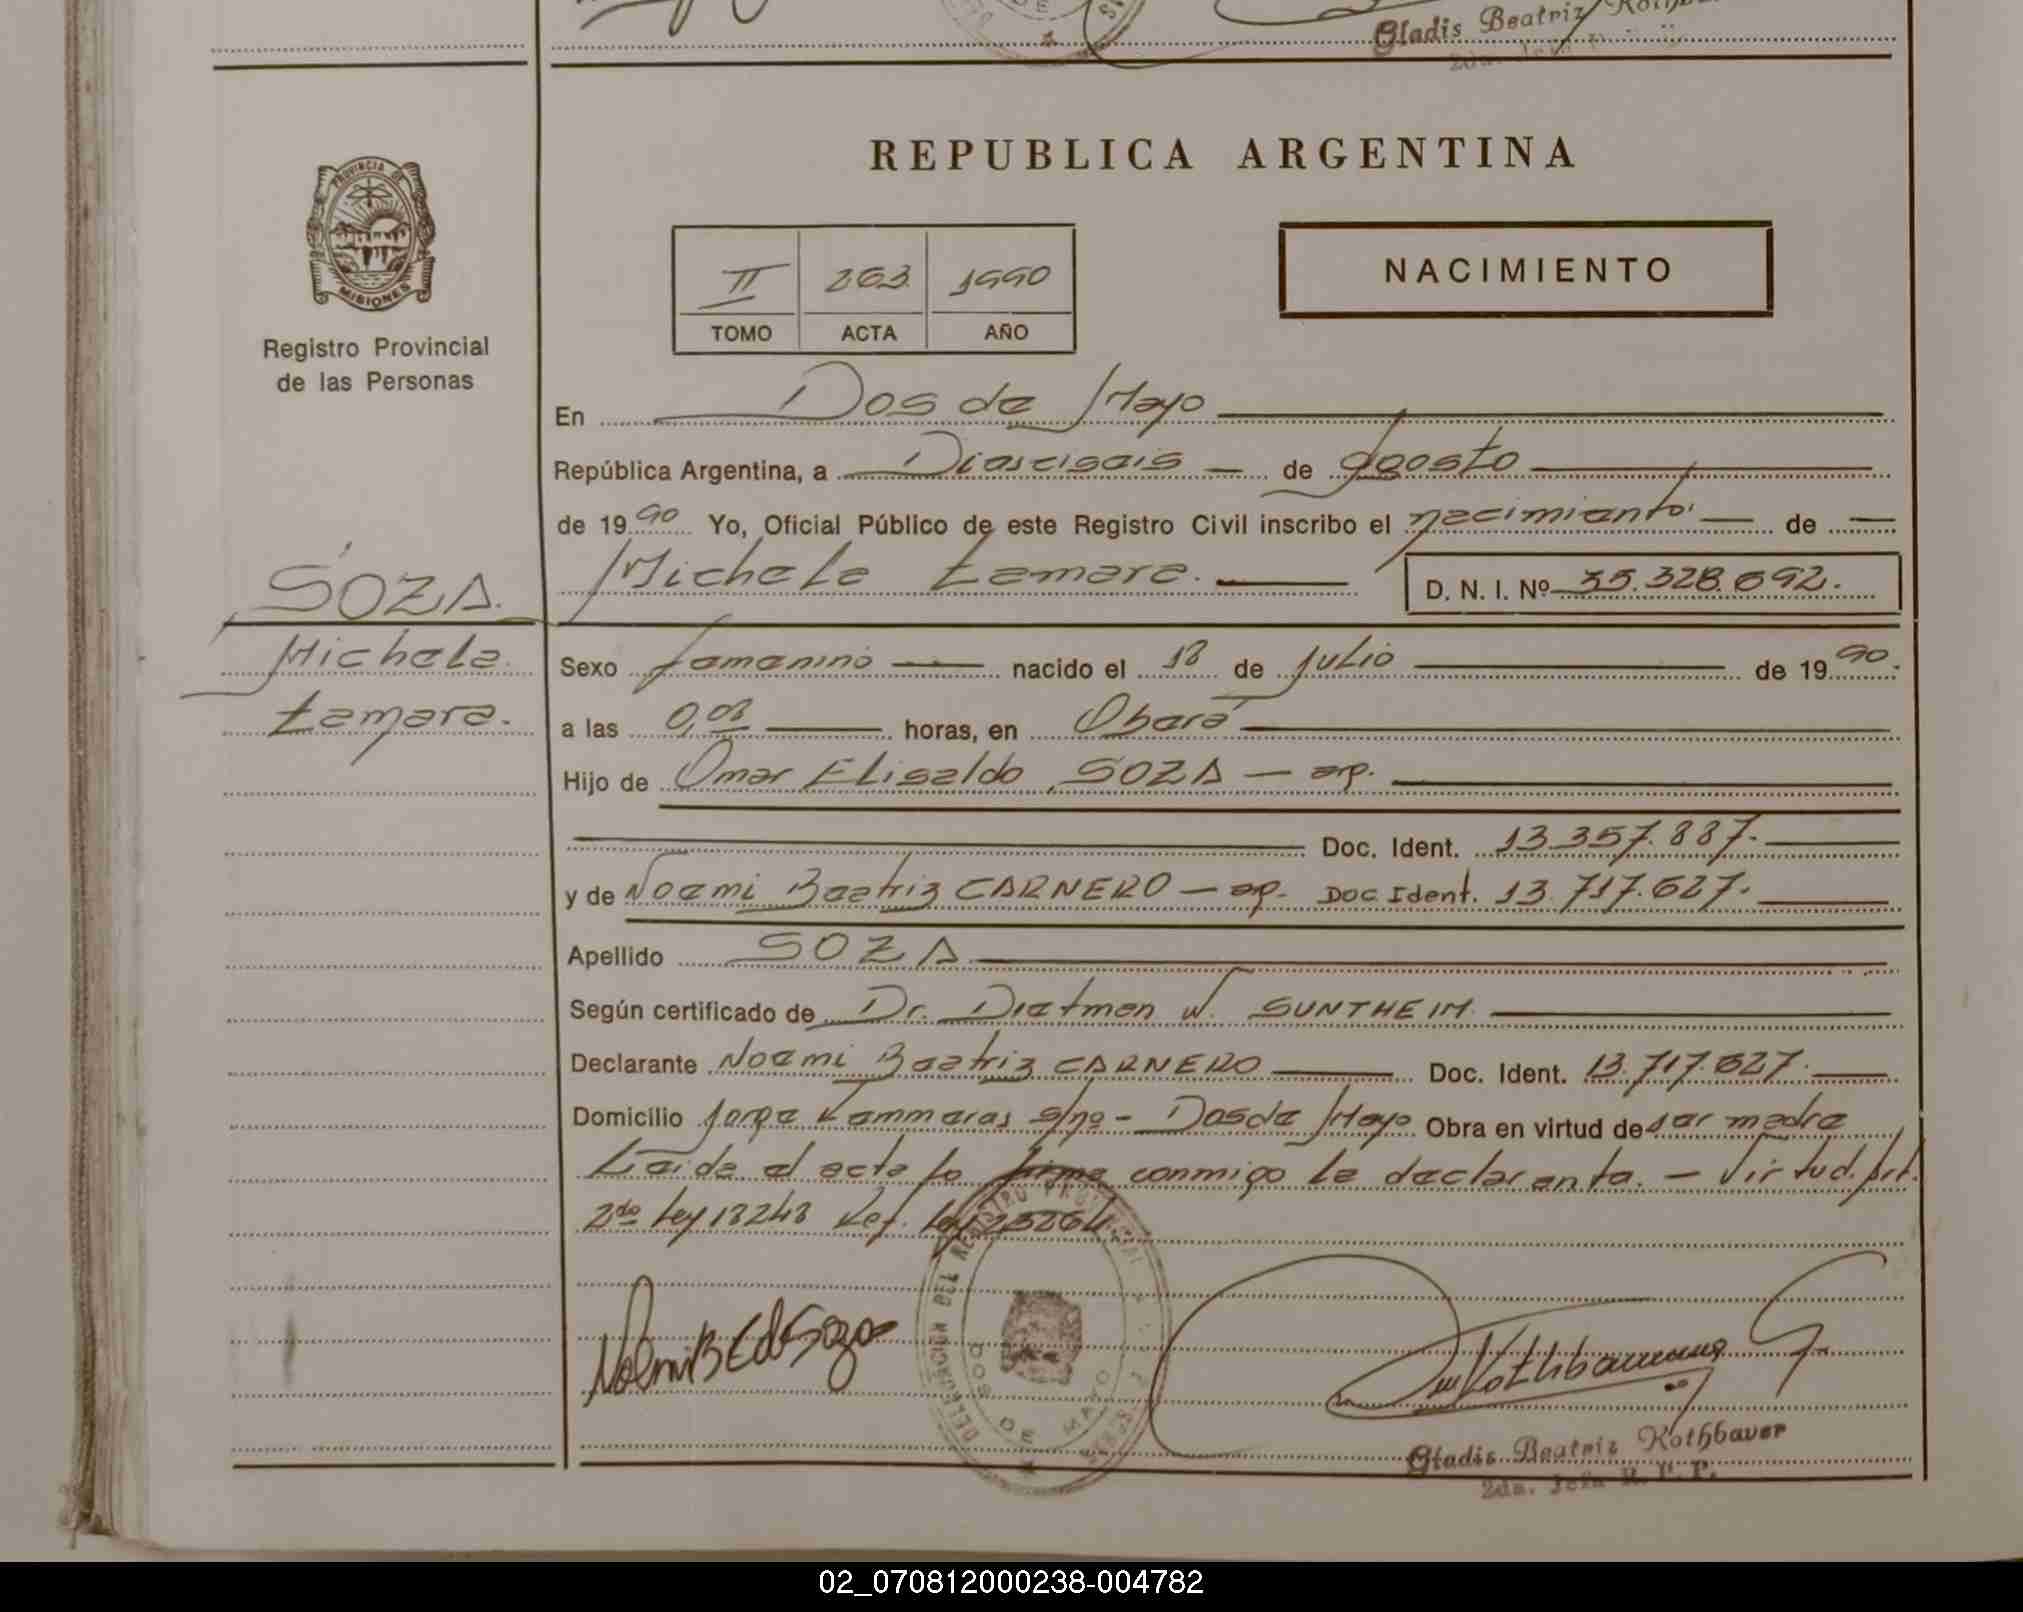 Gladis Beatriz
REPUBLICA ARGENTINA
PROVINCIA DE
MISIONES
Registro Provincial
de las Personas
II 263 1990
TOMO ACTA AÑO
NACIMIENTO
En Dos de Mayo
República Argentina, a Dieciseis de Agosto
de 1990 Yo, Oficial Público de este Registro Civil inscribo el nacimiento de
Michele Tamara. D. N. I. Nº 35.328.692.
SOZA
Michele
Tamara.
Sexo femenino nacido el 18 de Julio de 1990.
a las 0,08 horas, en Oberá
Hijo de Omar Elisaldo SOZA - ap.
Doc. Ident. 13.357.887.
y de Noemi Beatriz CARNERO - ap. Doc Ident. 13.717.627.
Apellido SOZA
Según certificado de Dr. Dietmen W. SUNTHEIM
Declarante Noemi Beatriz CARNERO Doc. Ident. 13.717.627.
Domicilio Jorge s/nº - Dos de Mayo Obra en virtud de ser madre
Leida el acta la firma conmigo la declarante. - Virtud. Art.
2do Ley 18248 Ref. Ley 23264
DOS DE MAYO
Gladis Beatriz Rothbaver
2da. Jefa R. P. P.
02_070812000238-004782